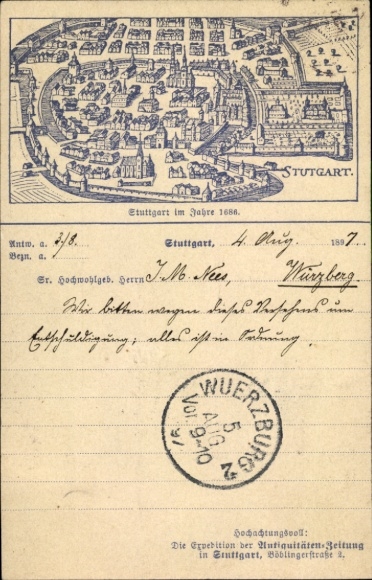 STUTGART.
Stuttgart im Jahre 1686.
Antw. a. 3/8. Stuttgart, 4 Aug. 1897.
Bezn. a.
Sr. Hochwohlgeb. Herrn J. M. Nees, Würzberg.
Wir bitten wegen dieses Versehens um
Entschuldigung; alles ist in Ordnung.
WUERZBURG 2
5
AUG
Vor. 9-10
97
Hochachtungsvoll:
Die Expedition der Antiquitäten-Zeitung
in Stuttgart, Böblingerstraße 2.